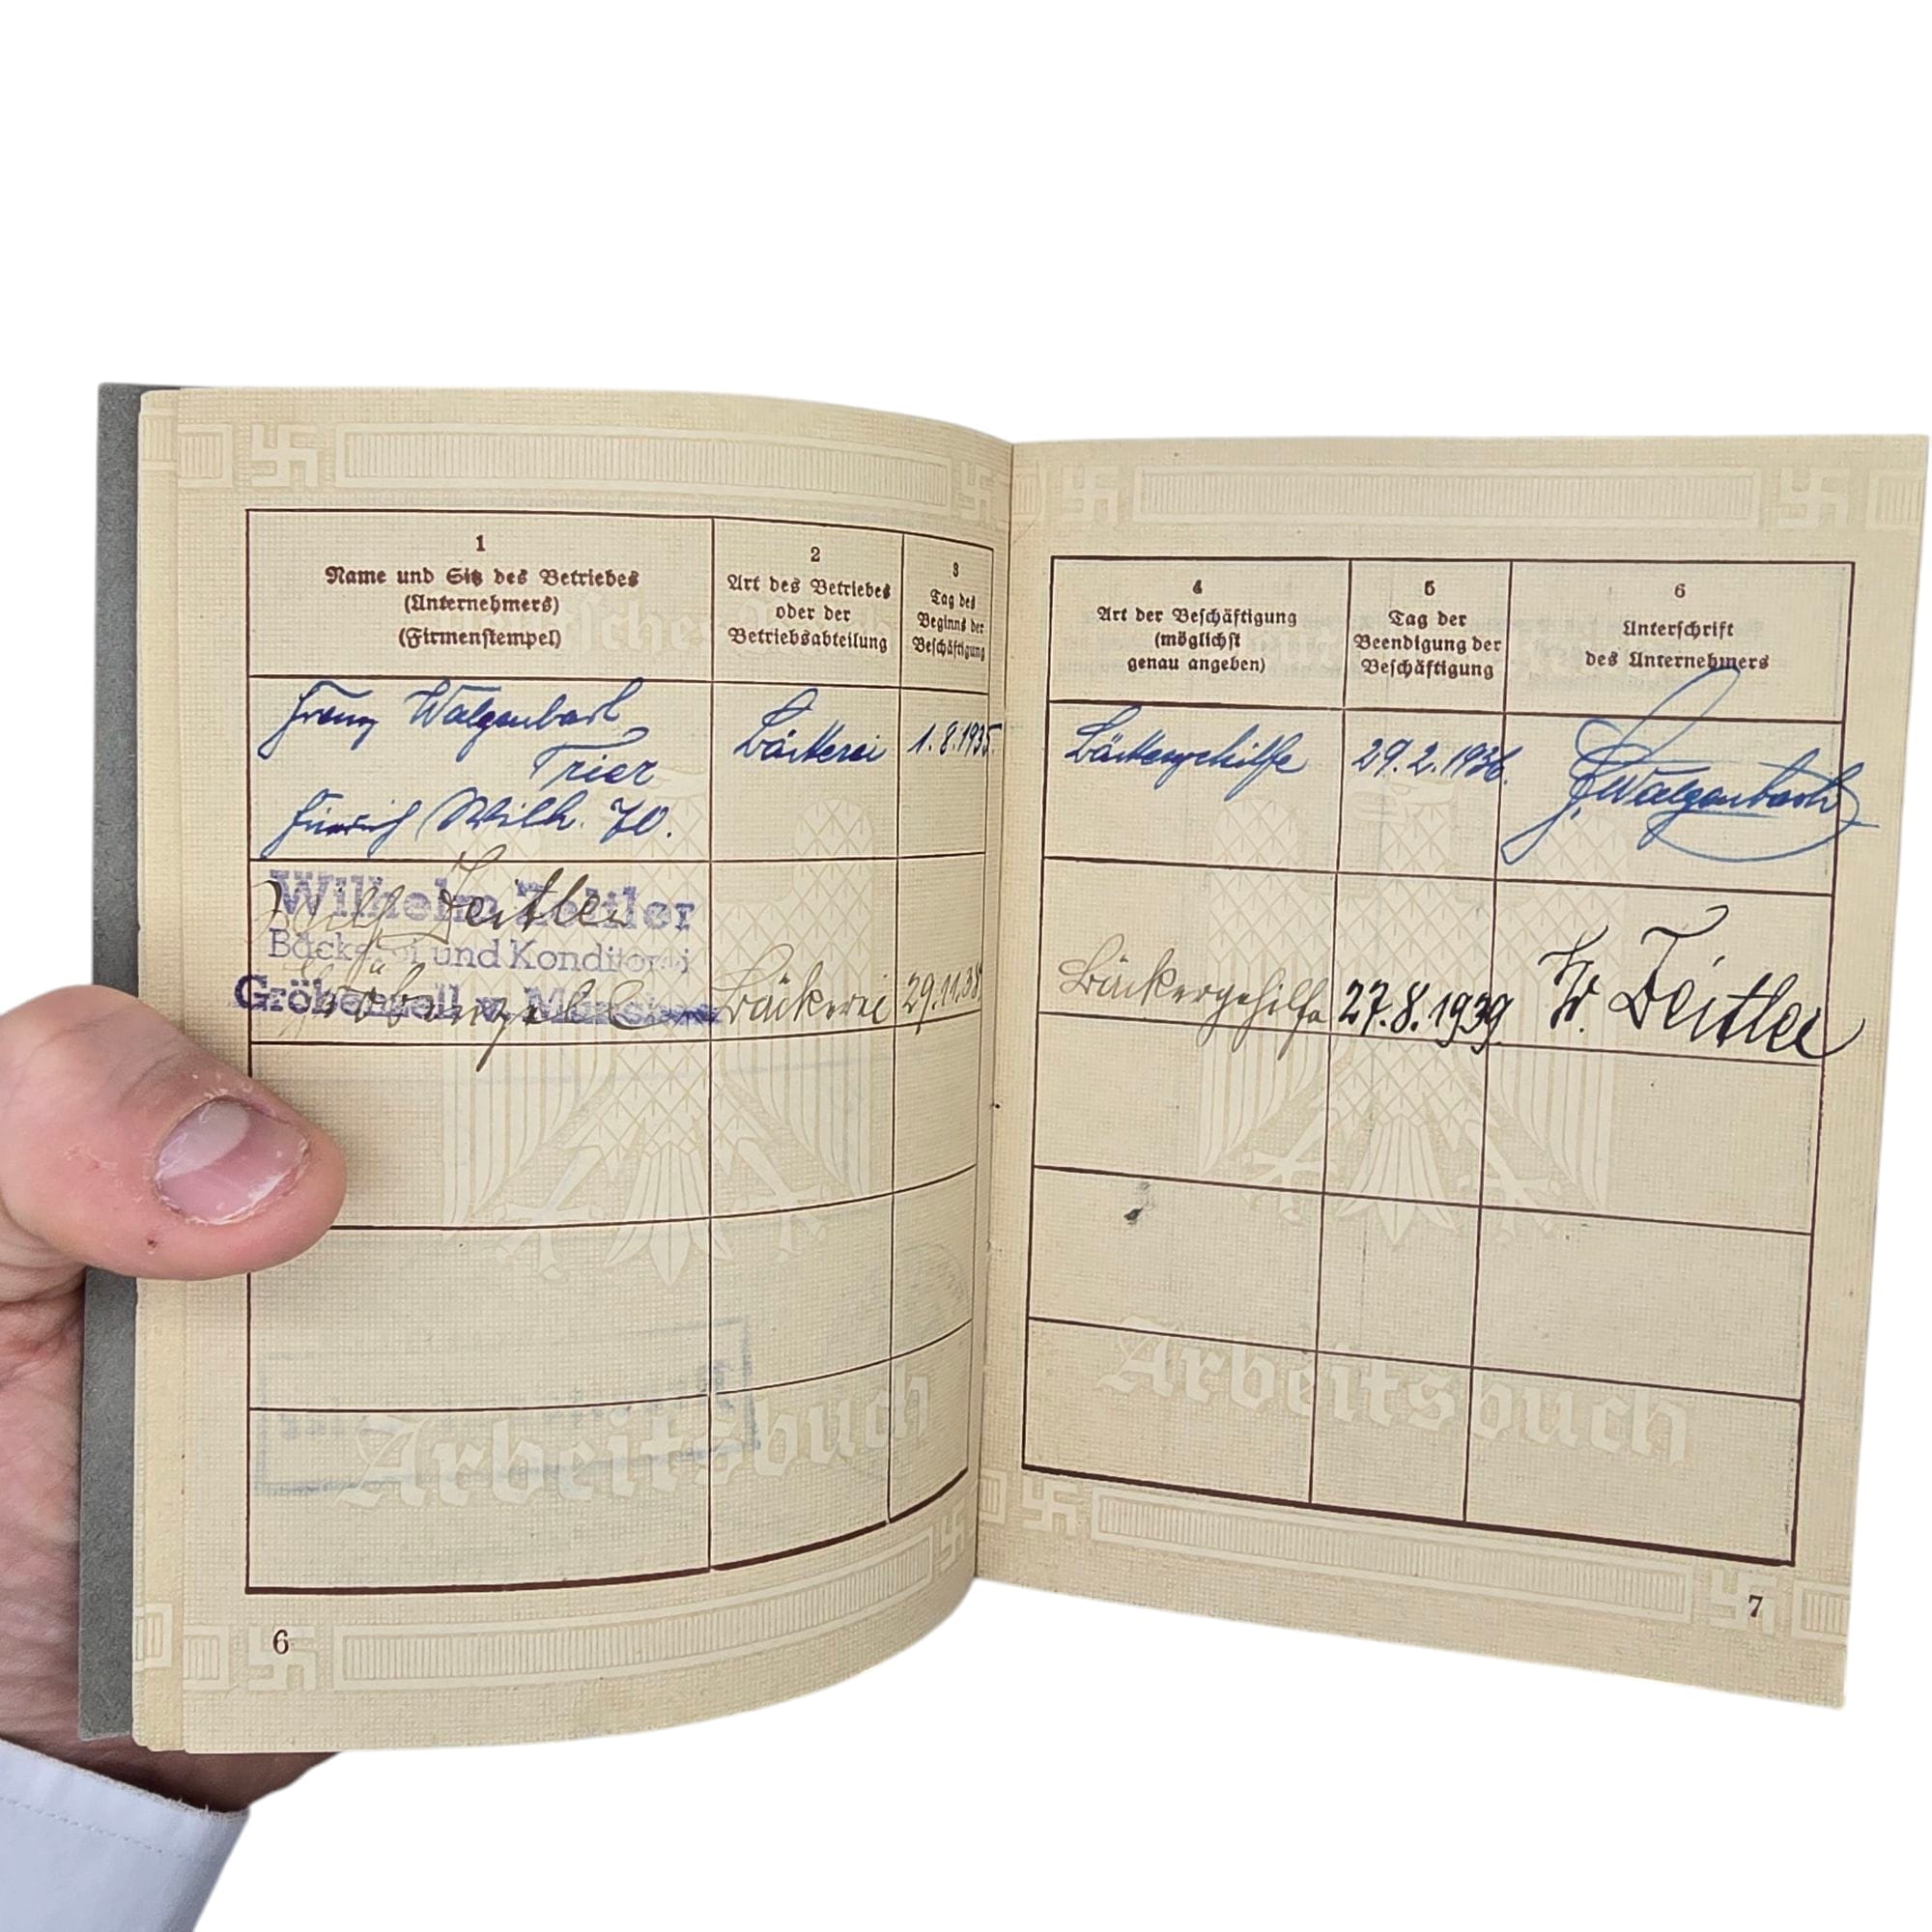 1
Name und Sitz des Betriebes
(Unternehmers)
(Firmenstempel)
2
Art des Betriebes
oder der
Betriebsabteilung
3
Tag des
Beginns der
Beschäftigung
Franz Walgenbach
Trier
Wilh. 70.
Bäckerei
1.8.1935
Wilhelm Zeitler
Zeitler
Bäckerei und Konditorei
Gröbenzell
Gröbenzell
Bäckerei
29.11.38
Arbeitsbuch
6
4
Art der Beschäftigung
(möglichst
genau angeben)
5
Tag der
Beendigung der
Beschäftigung
6
Unterschrift
des Unternehmers
Bäckergehilfe
29.2.1936.
F. Walgenbach
Bäckergehilfe
27.8.1939
W. Zeitler
Arbeitsbuch
7